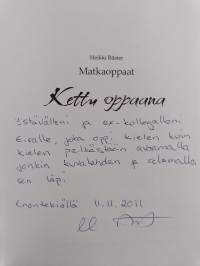 Heikki Rüster
Matkaoppaat
Kettu oppaana
Ystävälleni ja ex-kollegalleni
Eiralle, joka opp. kielen kuin
kielen pelkästään avaamalla
jonkin kuvalehden ja selaamalla
sen läpi
Enontekiöllä 11.11.2011